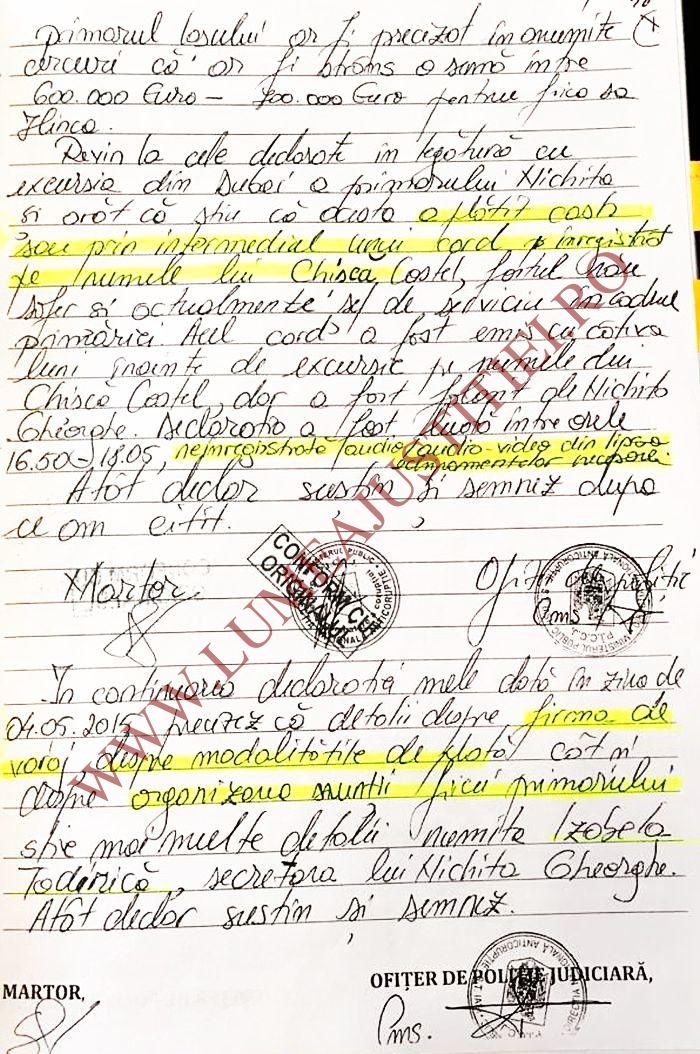 primarul Iasului ar fi precizat în anumite
cercuri că ar fi strâns o sumă între
600.000 Euro - 700.000 Euro pentru fiica sa
Ilinca.
Revin la cele declarate în legătură cu
excursia din Dubai a primarului Nichita
și arăt că știu că acesta a plătit cash
sau prin intermediul unui card înregistrat
pe numele lui Chișcă Costel, fostul
șofer și actualmente șef de serviciu în cadrul
primăriei. Acel card a fost emis cu câteva
luni înainte de excursie pe numele lui
Chișcă Costel, dar a fost folosit de Nichita
Gheorghe. Declarația a fost luată între orele
16.50 - 18.05, neînregistrată audio/audio-video din lipsa
echipamentelor necesare.
Atât declar susțin și semnez după
ce am citit.
Martor,
Ofițer de poliție
CONFORM CU
ORIGINALUL
În continuarea declarației mele dată în ziua de
04.05.2015 precizez că detalii despre firma de
voiaj despre modalitățile de plată cât și
despre organizarea nunții fiicei primarului
știe mai multe detalii numita Izabela
Toderică, secretara lui Nichita Gheorghe.
Atât declar susțin și semnez.
MARTOR,
OFIȚER DE POLIȚIE JUDICIARĂ,
WWW.LUMEAJUSTITIEI.RO